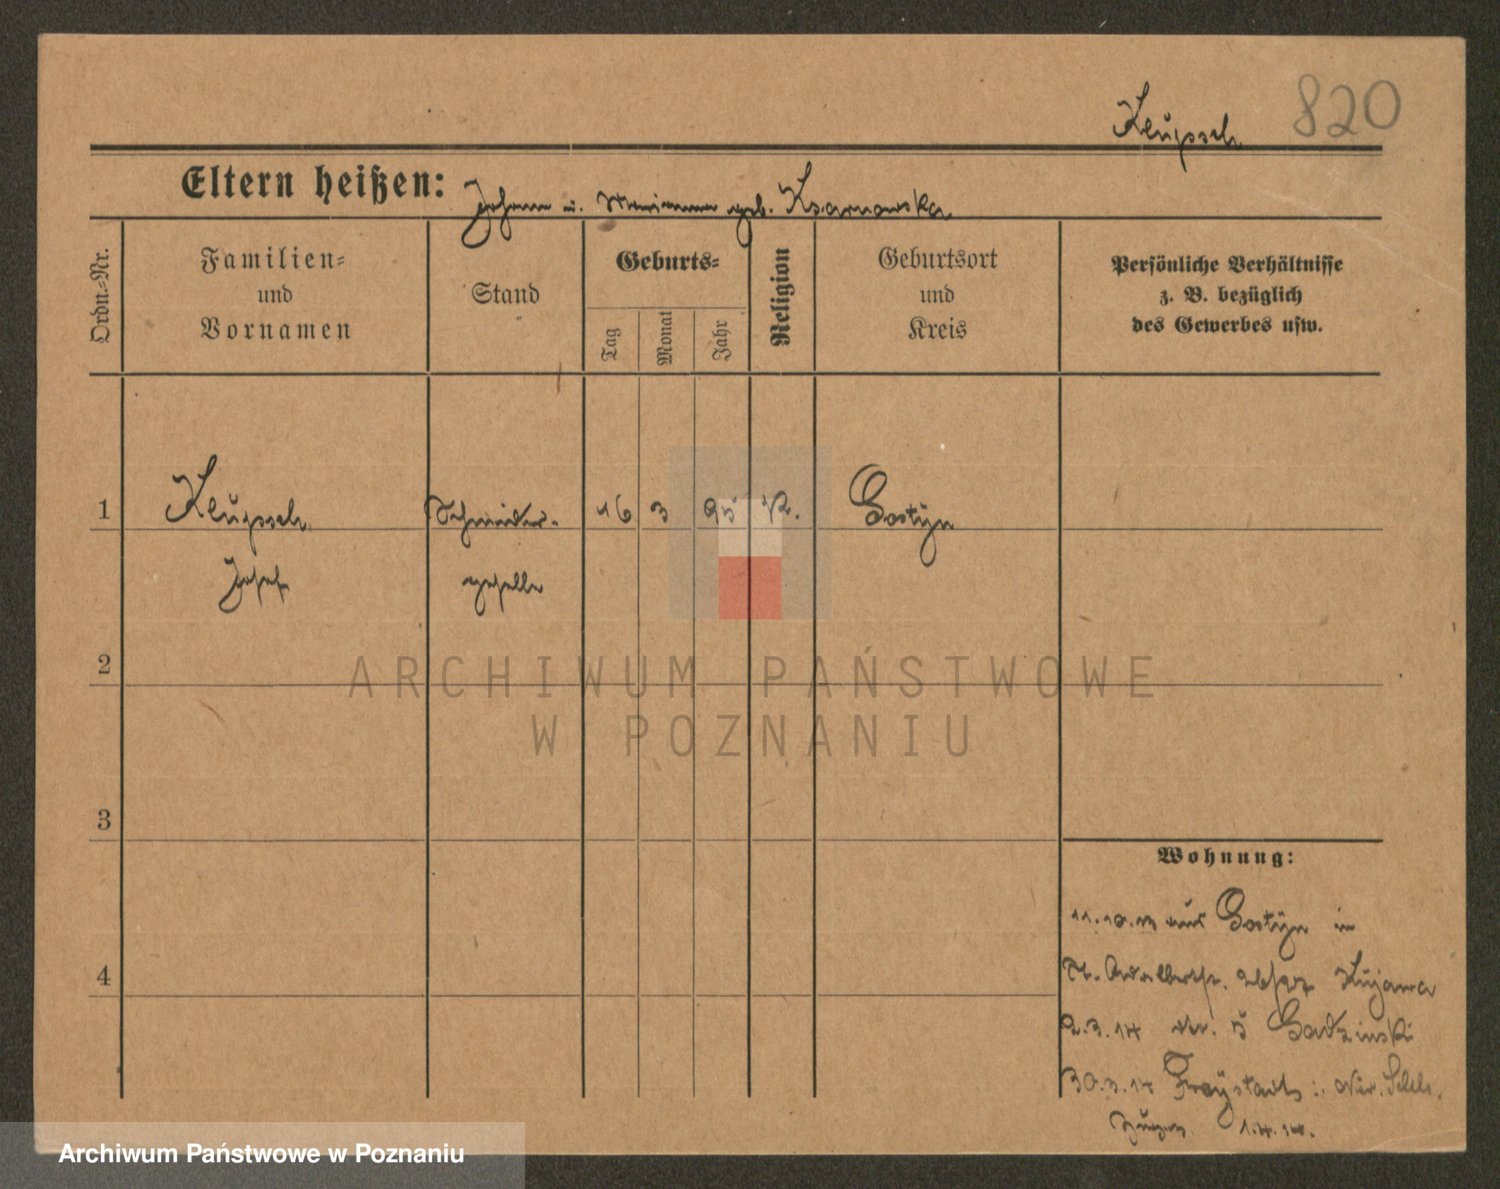 820
Keupsch
Eltern heißen: Johann u. Marianna geb. Ksarnowska
Ordn.-Nr.
Familien-
und
Vornamen
Stand
Geburts-
Tag
Monat
Jahr
Religion
Geburtsort
und
Kreis
Persönliche Verhältnisse
z. B. bezüglich
des Gewerbes usw.
1 Schneider- 16 3 95 K. Gostyn
Josef geselle
2
ARCHIWUM PAŃSTWOWE
W POZNANIU
3
Wohnung:
11.10.13 aus Gostyn in
St. Adalbertstr. 26/27 Kujawa
4
2.3.14 5 Gadzinski
30.3.14 Freystadt
1.4.14.
Archiwum Państwowe w Poznaniu